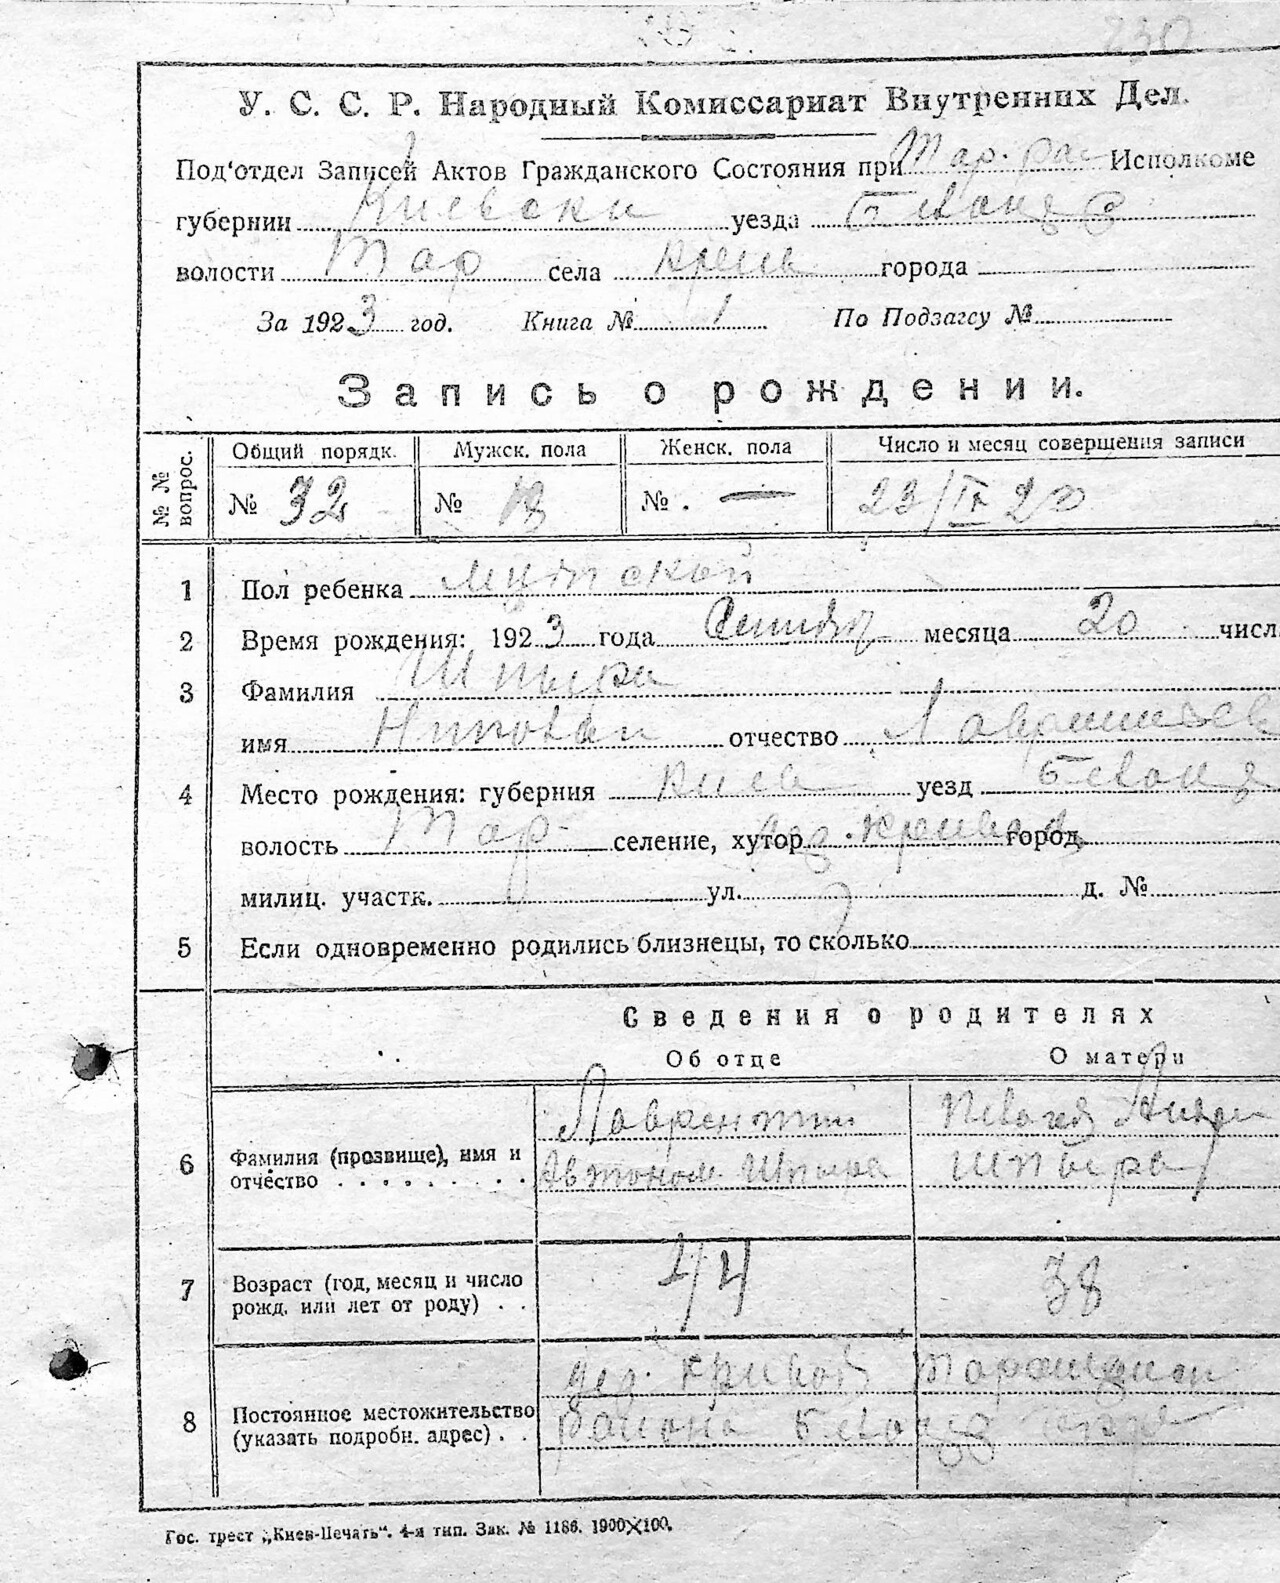 230
У. С. С. Р. Народный Комиссариат Внутренних Дел.
Под'отдел Записей Актов Гражданского Состояния при Тар. рай Исполкоме
губернии Киевски уезда
волости Тар села города
За 1923 год. Книга № 1 По Подзагсу №
Запись о рождении.
№ № вопрос. Общий порядк. Мужск. пола Женск. пола Число и месяц совершения записи
№ 32 № 18 № . — 23/IX
1 Пол ребенка мужской
2 Время рождения: 1923 года месяца 20 числ
3 Фамилия Шпыра
имя отчество
4 Место рождения: губерния Киев уезд
волость Тар. селение, хутор город
милиц. участк. ул. д. №
5 Если одновременно родились близнецы, то сколько
Сведения о родителях
Об отце О матери
6 Фамилия (прозвище), имя и отчество Лаврентий
Автоном. Шпыра Шпыра
7 Возраст (год, месяц и число рожд. или лет от роду) . . 44 38
8 Постоянное местожительство (указать подробн. адрес) . . дер. Кривой
района
Гос. трест „Киев-Печать“. 4-я тип. Зак. № 1186. 1900×100.